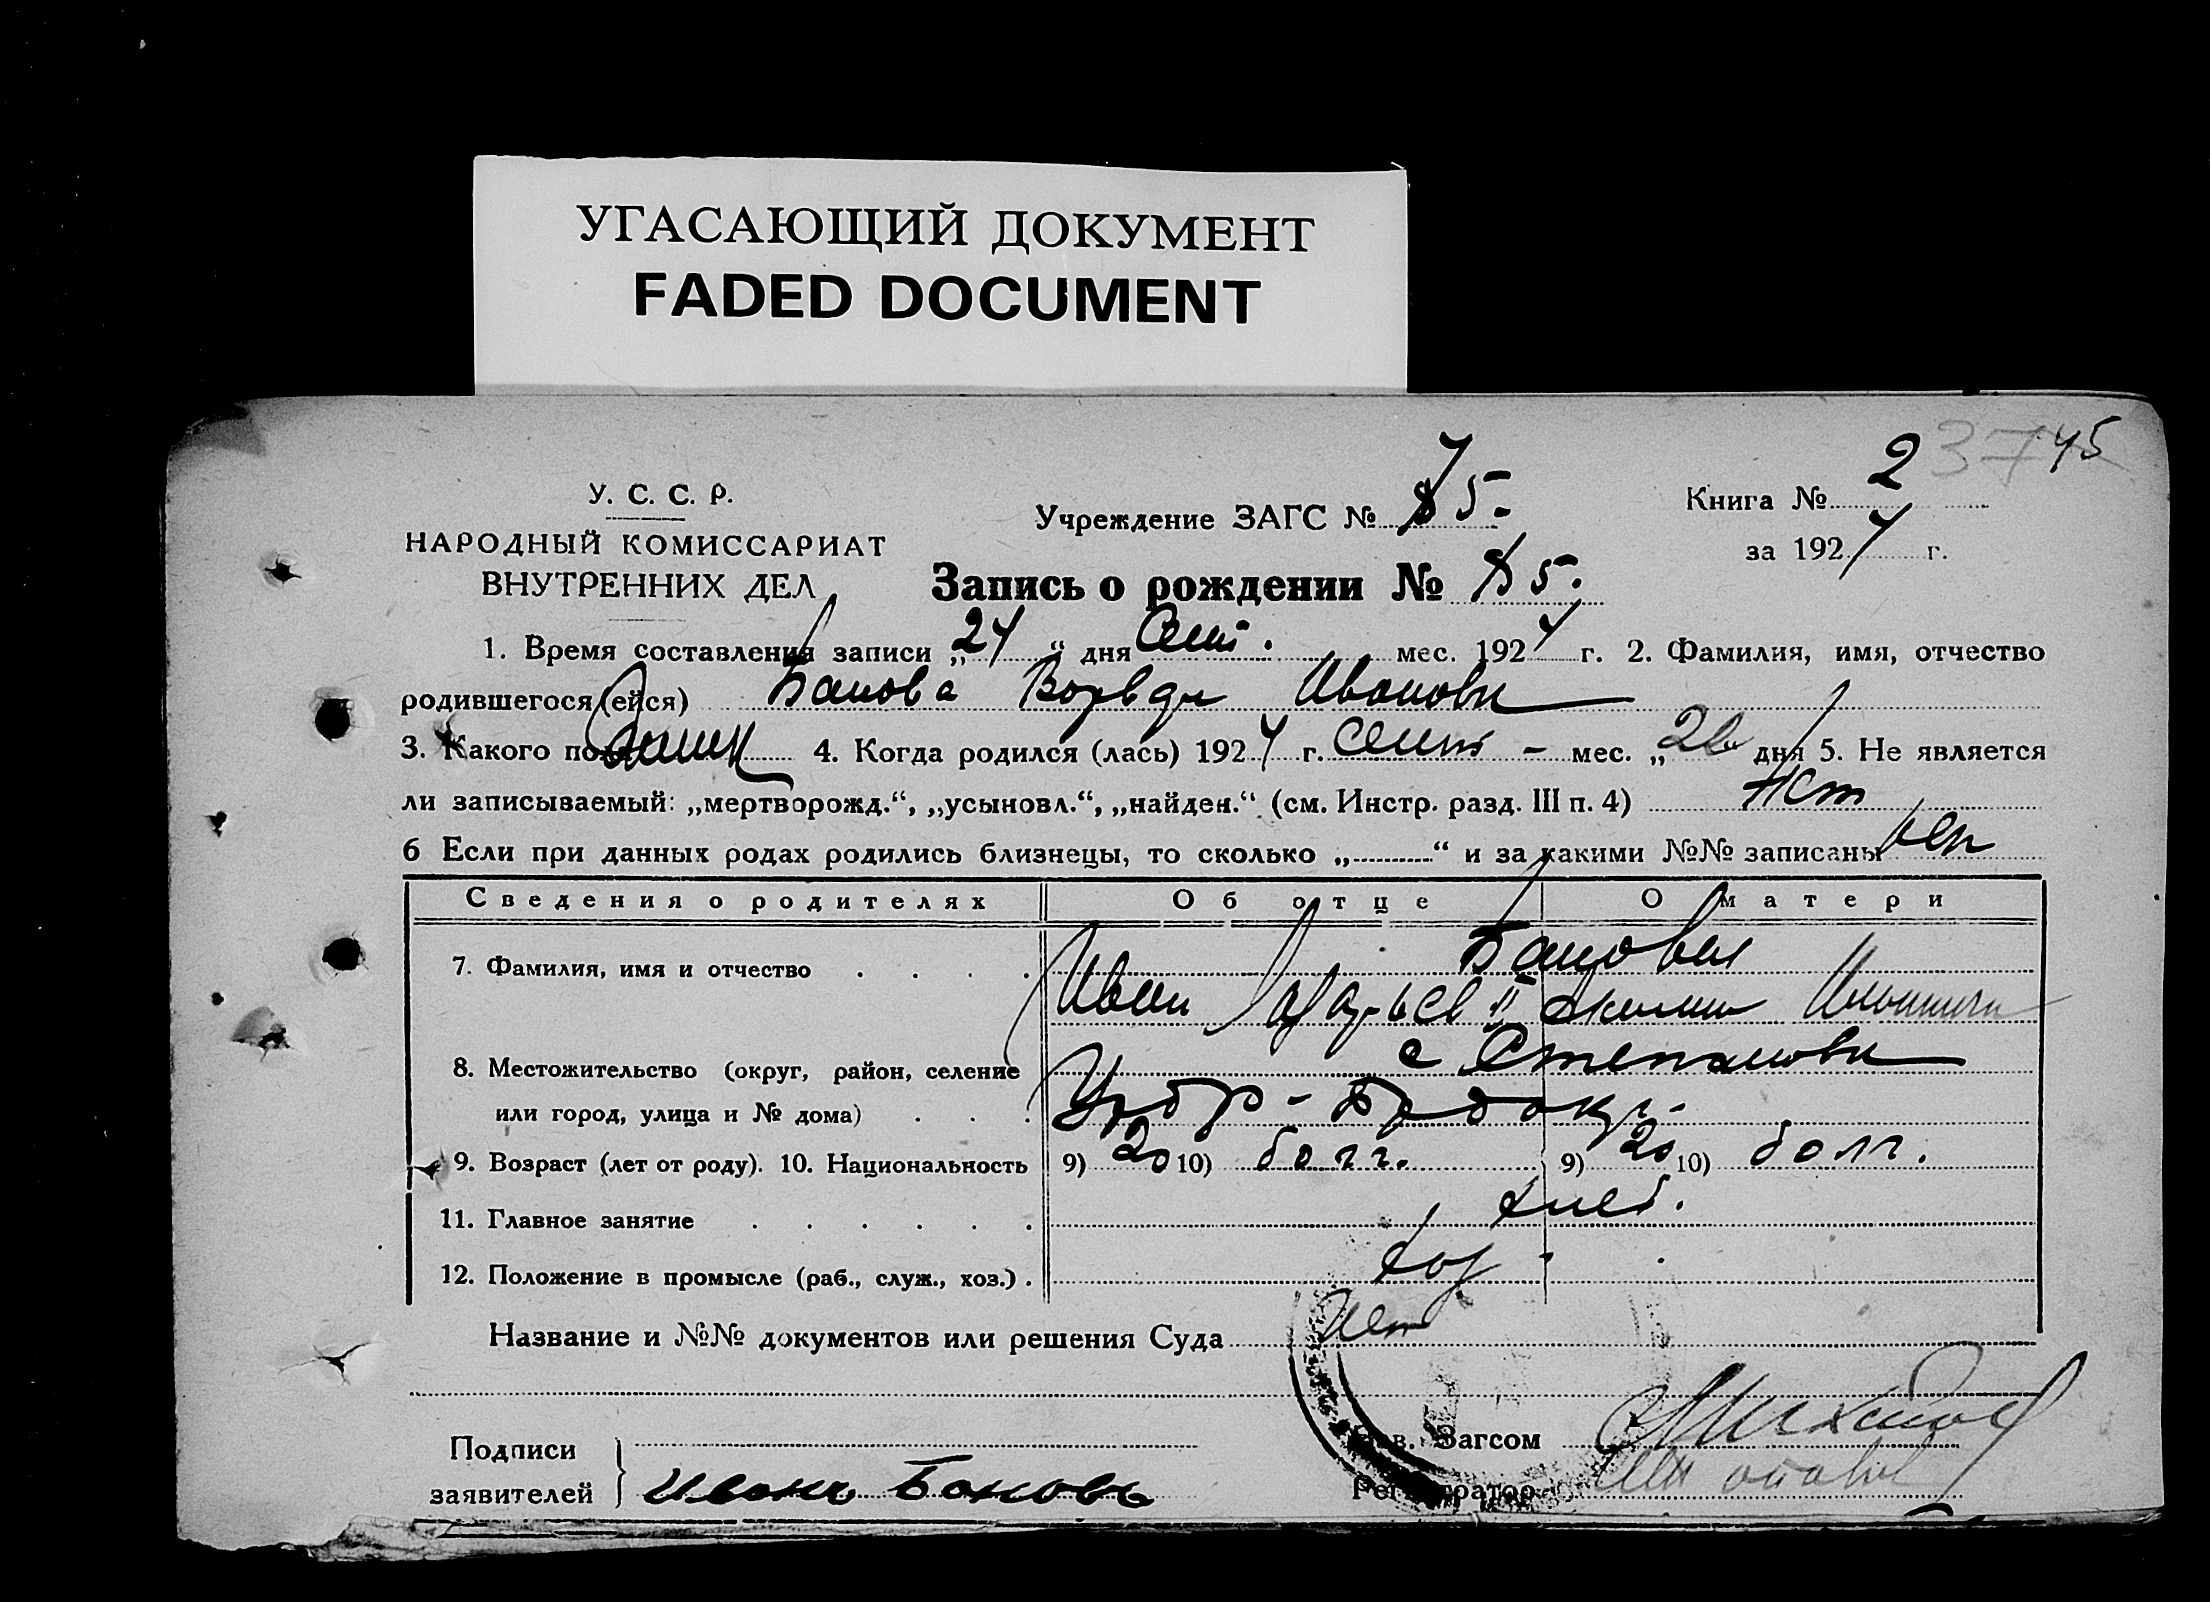 УГАСАЮЩИЙ ДОКУМЕНТ
FADED DOCUMENT
3745
У. С. С. Р.
НАРОДНЫЙ КОМИССАРИАТ
ВНУТРЕННИХ ДЕЛ
Учреждение ЗАГС № 85.
Книга № 2
за 1924 г.
Запись о рождении № 85.
1. Время составления записи „24“ дня Сент. мес. 1924 г. 2. Фамилия, имя, отчество
родившегося (ейся) Банова Ивановн
3. Какого 4. Когда родился (лась) 1924 г. сент - мес. „ дня 5. Не является
ли записываемый: „мертворожд.“, „усыновл.“, „найден.“ (см. Инстр. разд. III п. 4) Нет
6 Если при данных родах родились близнецы, то сколько „ “ и за какими №№ записаны нет
Сведения о родителях Об отце О матери
7. Фамилия, имя и отчество Бановы
Иван
8. Местожительство (округ, район, селение с Степановк
или город, улица и № дома)
9. Возраст (лет от роду). 10. Национальность 9) 20 10) болг. 9) 20 10) болг.
11. Главное занятие хлеб.
12. Положение в промысле (раб., служ., хоз.) хоз
Название и №№ документов или решения Суда Нет
Подписи заявителей Иванъ Бановъ
Зав. Загсом
Регистратор